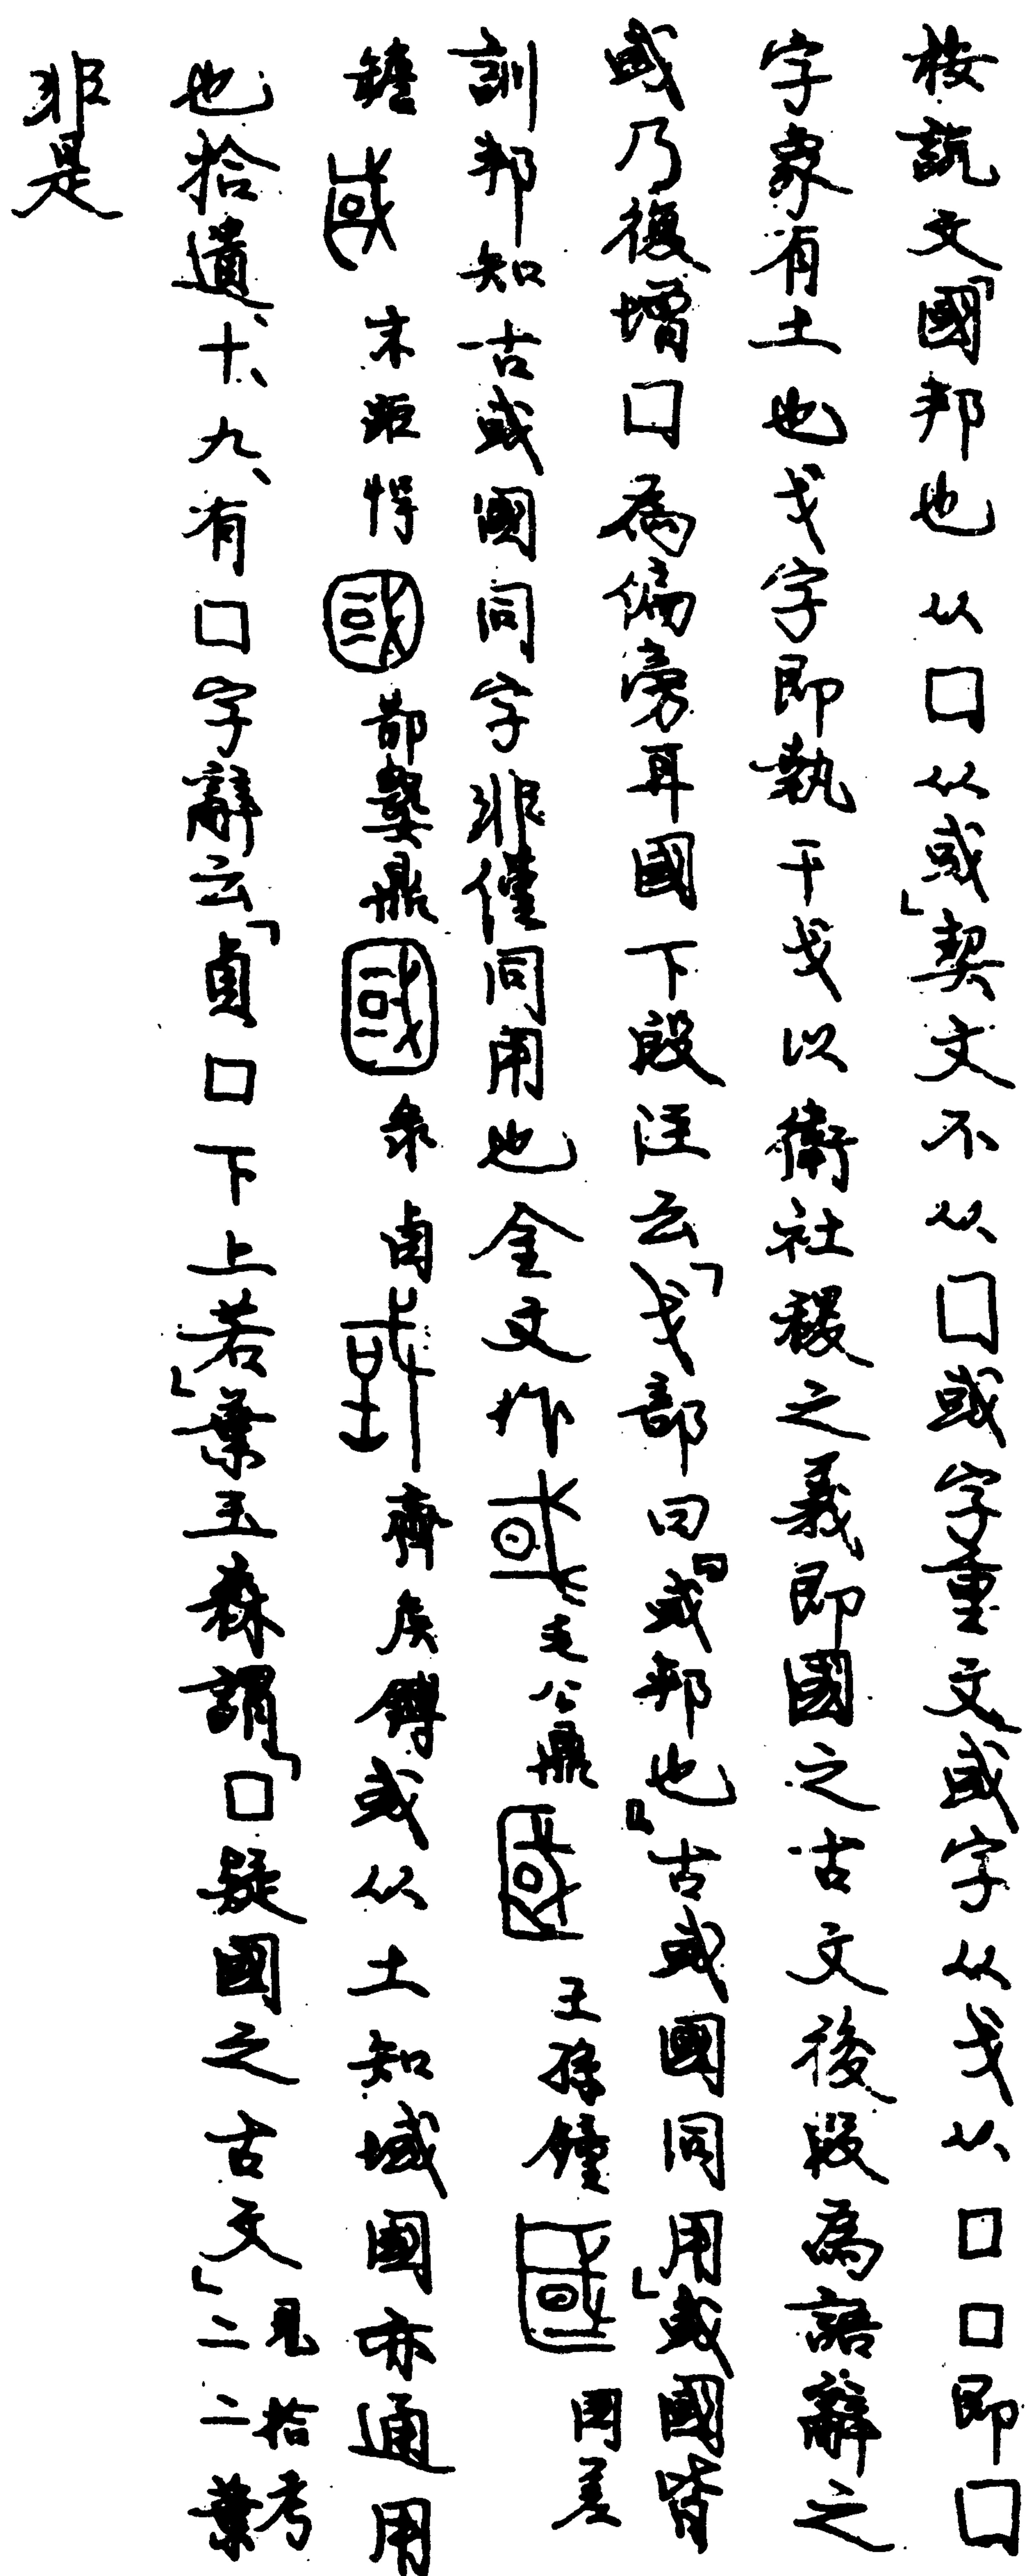 按説文「國邦也从囗从或」契文不从囗或字重文或字从戈从口口即囗
字象有土也戈字即執干戈以衛社稷之義即國之古文後叚為語辭之
或乃復增囗為偏旁耳國下段注云「戈部曰『或邦也』古或國同用」或國皆
訓邦知古或國同字非僅同用也金文作毛公鼎王孫鐘國差
𦉜末距悍鄀鼎彔卣齊侯鎛或从土知域國亦通用
也拾遺、十、九、有囗字辭云「貞囗下上若」葉玉森謂「囗疑國之古文」見拾考二二葉
非是